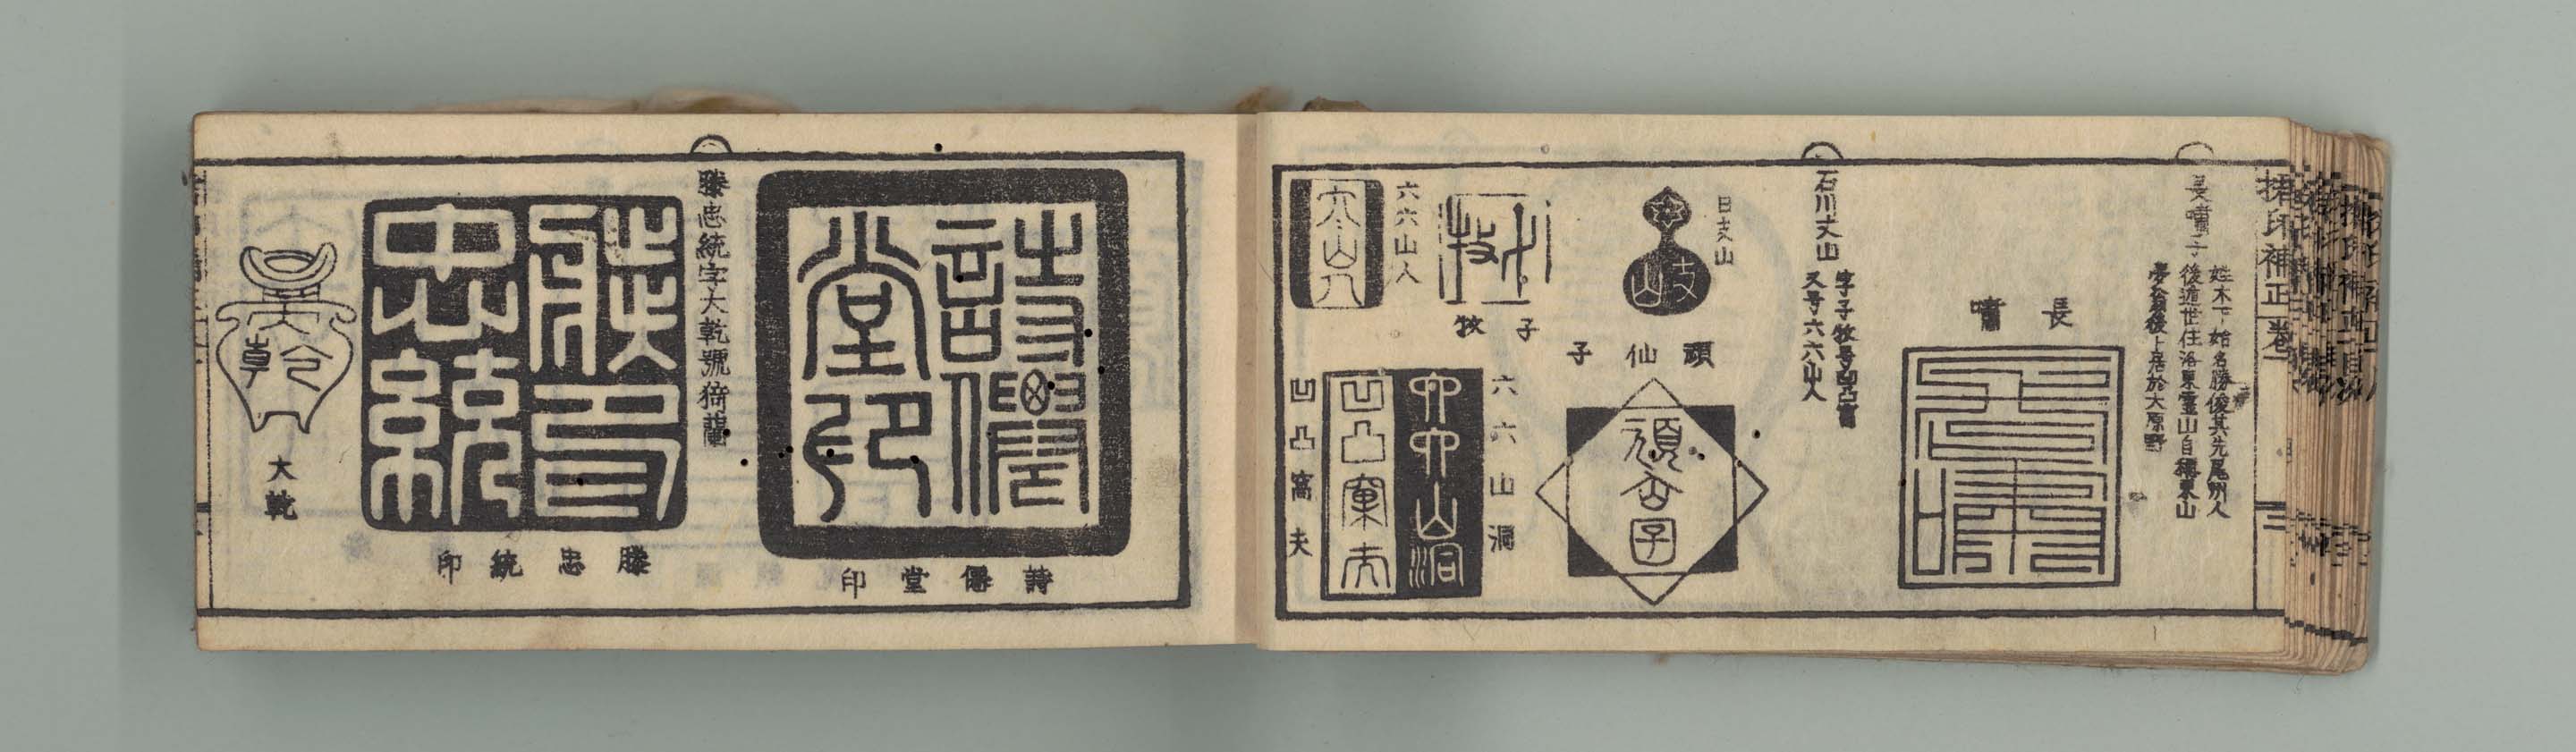 捃印補正
卷一
長嘯子
姓木下始名勝俊其先尾州人
後遁世住洛東靈山自稱東山
夢翁後卜居於大原野
長嘯
石川丈山
字子牧号凹凸窩
又号六六山人
日支山
頑仙子
子牧
六六山人
六六山洞
凹凸窩夫
詩僊堂印
詩僊堂印
滕忠統字大乾號猗蘭
滕忠統印
大乾